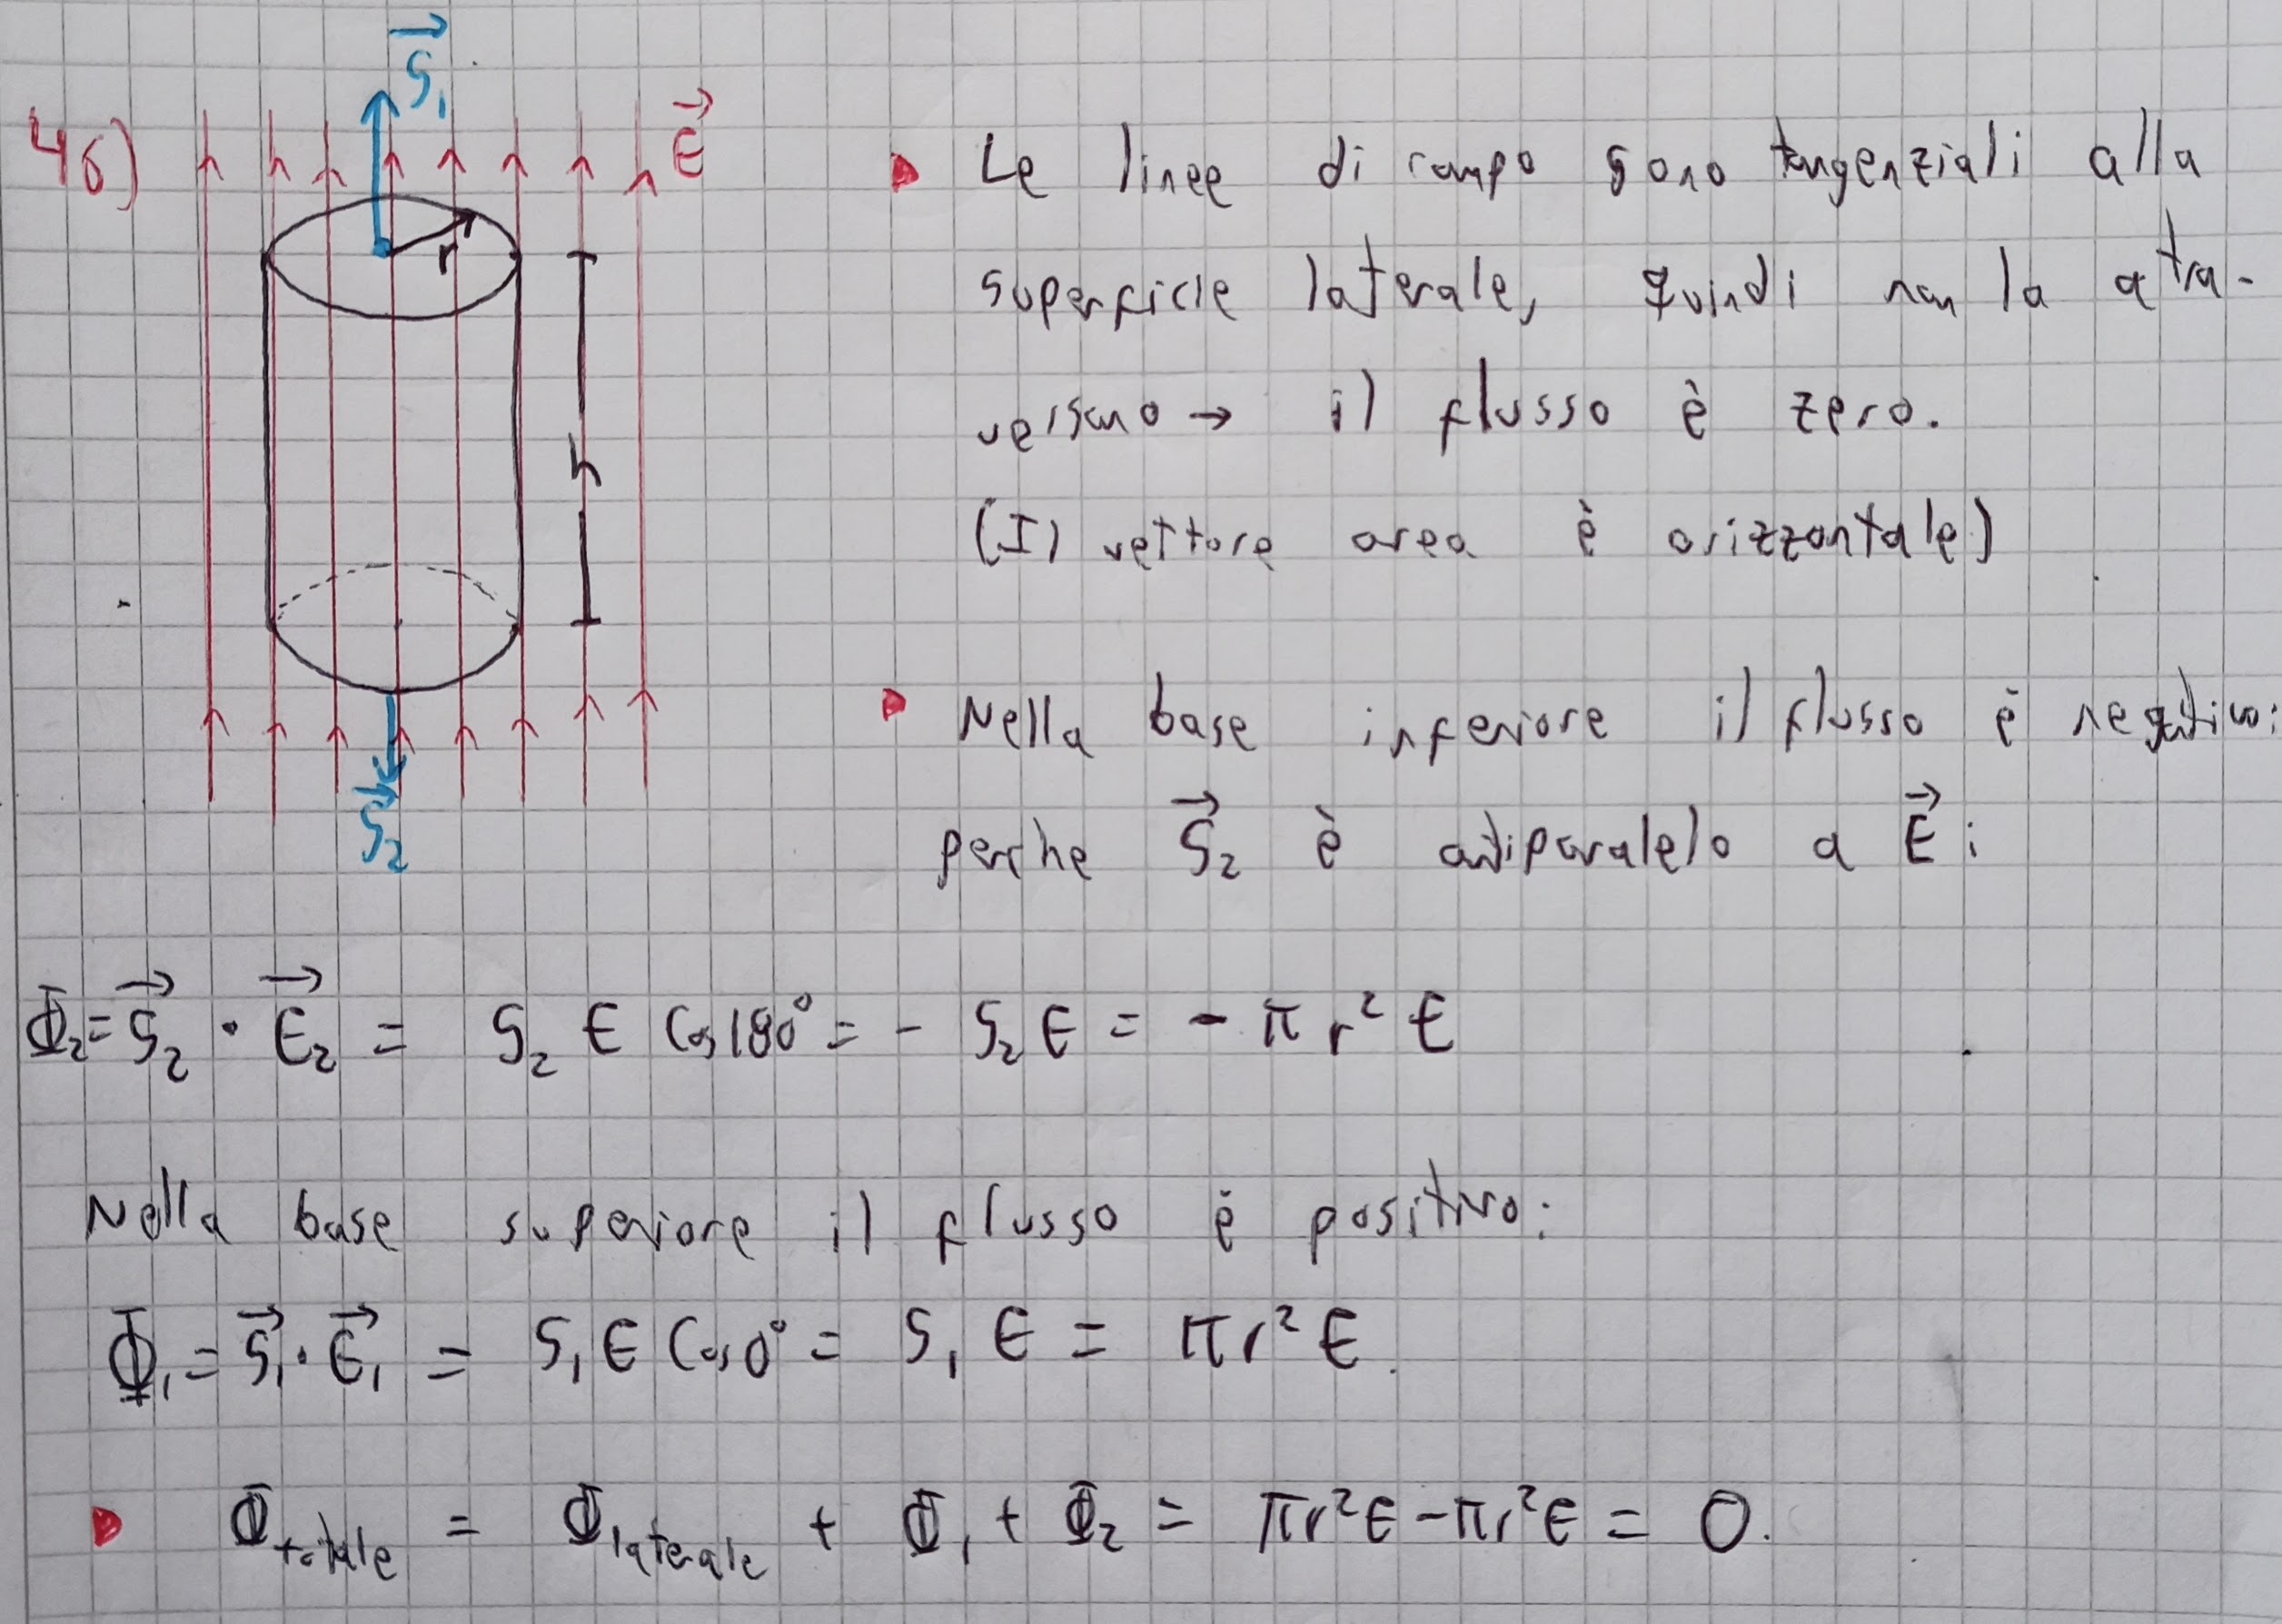 S⃗₁
46)
E⃗
r
h
S⃗₂
Le linee di campo sono tangenziali alla
superficie laterale, quindi non la atra-
versano → il flusso è zero.
(Il vettore area è orizzontale)
Nella base inferiore il flusso è negativo:
perche S⃗₂ è antiparalelo a E⃗:
Φ₂ = S⃗₂ · E⃗₂ = S₂ E Cos 180° = - S₂ E = - π r² E
Nella base superiore il flusso è positivo:
Φ₁ = S⃗₁ · E⃗₁ = S₁ E Cos 0° = S₁ E = π r² E.
Φtotale = Φlaterale + Φ₁ + Φ₂ = πr²E - πr²E = 0.